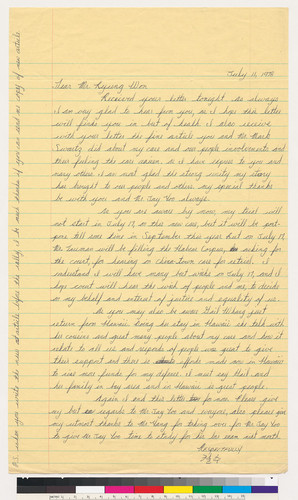 July 11, 1978
Dear Mr. Kyung Won
Received your letter tonight. As always
I am very glad to hear from you, so I hope this letter
will finds you in best of health. I also receive
with your letter the fine article you and Mr. Mark
did about my case and our people involvements and
their feeling the case reason. As I have express to you and
many other. I am most glad the strong unity my story
has bought to our people and others. My special thanks
be with you and Mr. Jay Yoo always.
As you are aware by now, my trial will
not start in July 17, on this new case, but it will be post-
pone till some time in September this year. But on July 17,
Mr. will be filling the Habeas Corpus, asking for
the court, for hearing on China town case for retrial. I
understand it will have many but works on July 17, and I
hope court will hear the wish of people and me, to decide
on my behalf and interest of justice and equality of us.
As you may also be aware Gail Whang just
return from Hawaii. During his stay in Hawaii she talk with
his cousins and great many people about my case and how it
relate to all us, and response of people was great to give
their support and there is funds made me in Hawaii
to use more funds for my defense. I must say Gail and
his family in bay area and in Hawaii is great people.
Again I end this letter for now. Please give
my best regards to Mr. Jay Yoo and everyone, also please give
my utmost thanks to Mr. Kang for taking over for Mr. Jay Yoo
to give Mr. Jay Yoo time to study for his bar exam next month.
Respectfully
P.S. when you write the case article after the rally is be